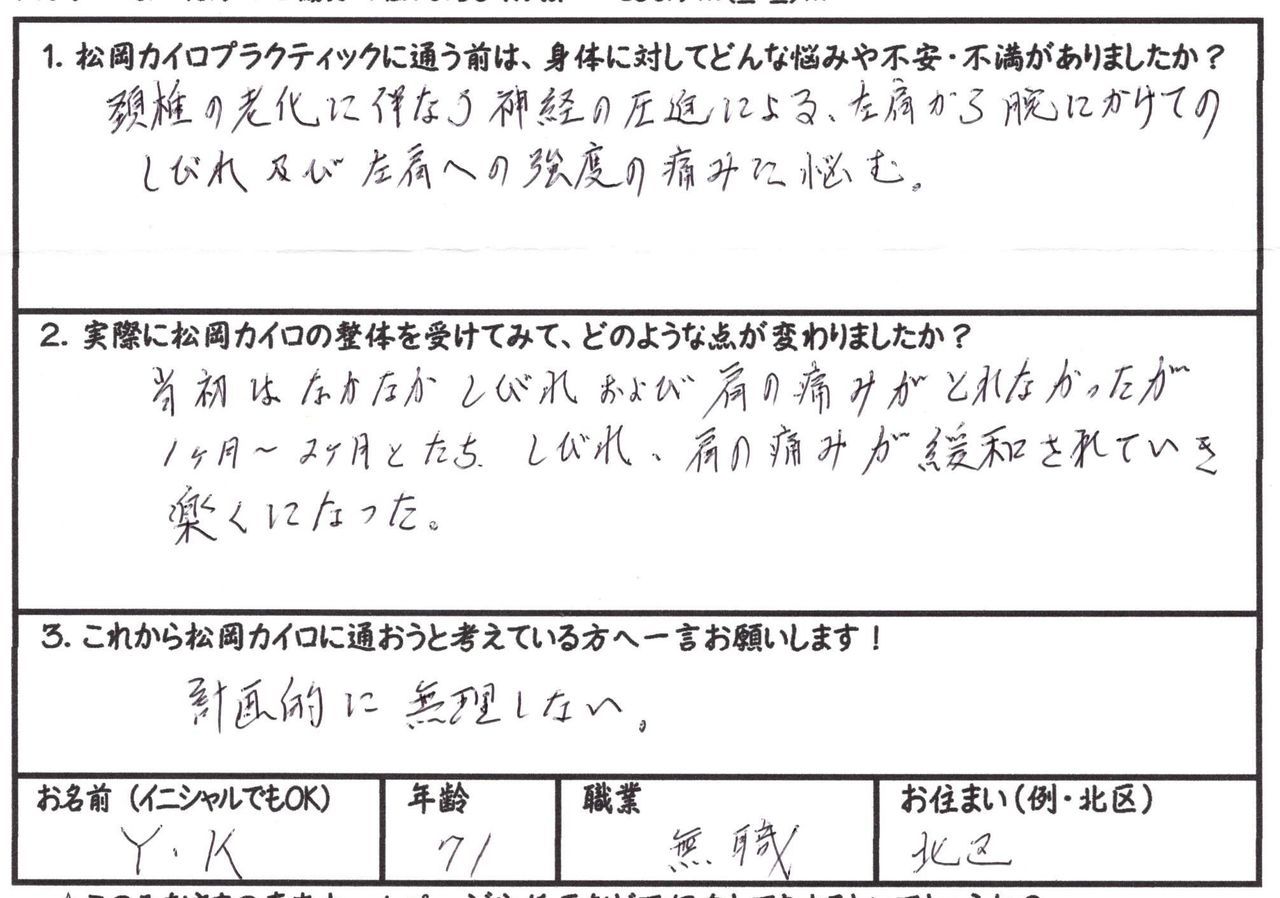 1. 松岡カイロプラクティックに通う前は、身体に対してどんな悩みや不安・不満がありましたか?
頚椎の老化に伴なう神経の圧迫による、左肩から腕にかけての
しびれ及び左肩への強度の痛みに悩む。
2. 実際に松岡カイロの整体を受けてみて、どのような点が変わりましたか?
当初はなかなかしびれおよび肩の痛みがとれなかったが
1ヶ月〜2ヶ月とたち、しびれ、肩の痛みが緩和されていき
楽くになった。
3. これから松岡カイロに通おうと考えている方へ一言お願いします!
計画的に無理しない。
お名前(イニシャルでもOK) 年齢 職業 お住まい(例・北区)
Y・K 71 無職 北区